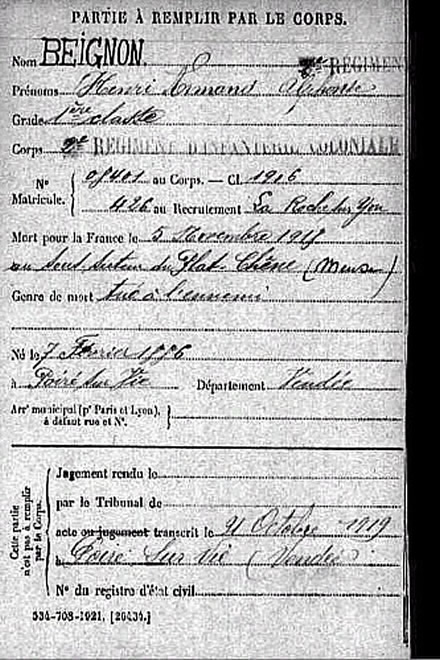 PARTIE À REMPLIR PAR LE CORPS.
Nom BEIGNON.
REGIMEN
Prénoms Henri Armand Alphonse
Grade 1ère classe
Corps 2e REGIMENT D'INFANTERIE COLONIALE
No Matricule. 08401 au Corps. — Cl. 1916
426 au Recrutement La Roche sur Yon
Mort pour la France le 5 Novembre 1918
au sous secteur du Plat-Chêne (Meuse)
Genre de mort tué à l'ennemi
Né le 7 Février 1896
à Poiré sur Vie Département Vendée
Arrt municipal (pr Paris et Lyon),
à défaut rue et No.
Cette partie n'est pas à remplir par le Corps.
Jugement rendu le
par le Tribunal de
acte ou jugement transcrit le 21 Octobre 1919
à Poiré sur Vie (Vendée)
No du registre d'état civil
534-708-1921. [26434.]